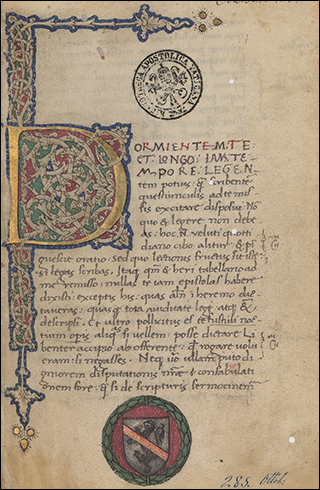 BIBLIOTECA APOSTOLICA VATICANA
DORMIENTEM. TE.
ET. LONGO. IAM. TE-
MPORE. LEGEN-
tem potius q̃ scribente
questiunculis ad te mis-
sis excitare disposui. No
quo et legere non debe
as: hoc .N. veluti quoti
diano cibo alitur & pī
guescit oratio. Sed quo lectionis fructus sit iste
si legas scribas. Itaq̨ qm̄ & heri tabellario ad
me remisso: nullas te iam epistolas habere
dixisti: exceptis his: quas alīn ī heremo dic
taveras: quasq̨ tota aviditate legi atq̨ &
descripsi. Et ultro pollicitus es te
tium opis aliq̃s si vellem: posse dictare. Li
benter accipio ab offerente: q̃ rogare volu
eram: si negasses. Neq̨ ũo ullam puto di
gniorem disputationis nr̄æ confabulati
onem fore: q̃ si de scripturis sermocinem
285. Ottob.